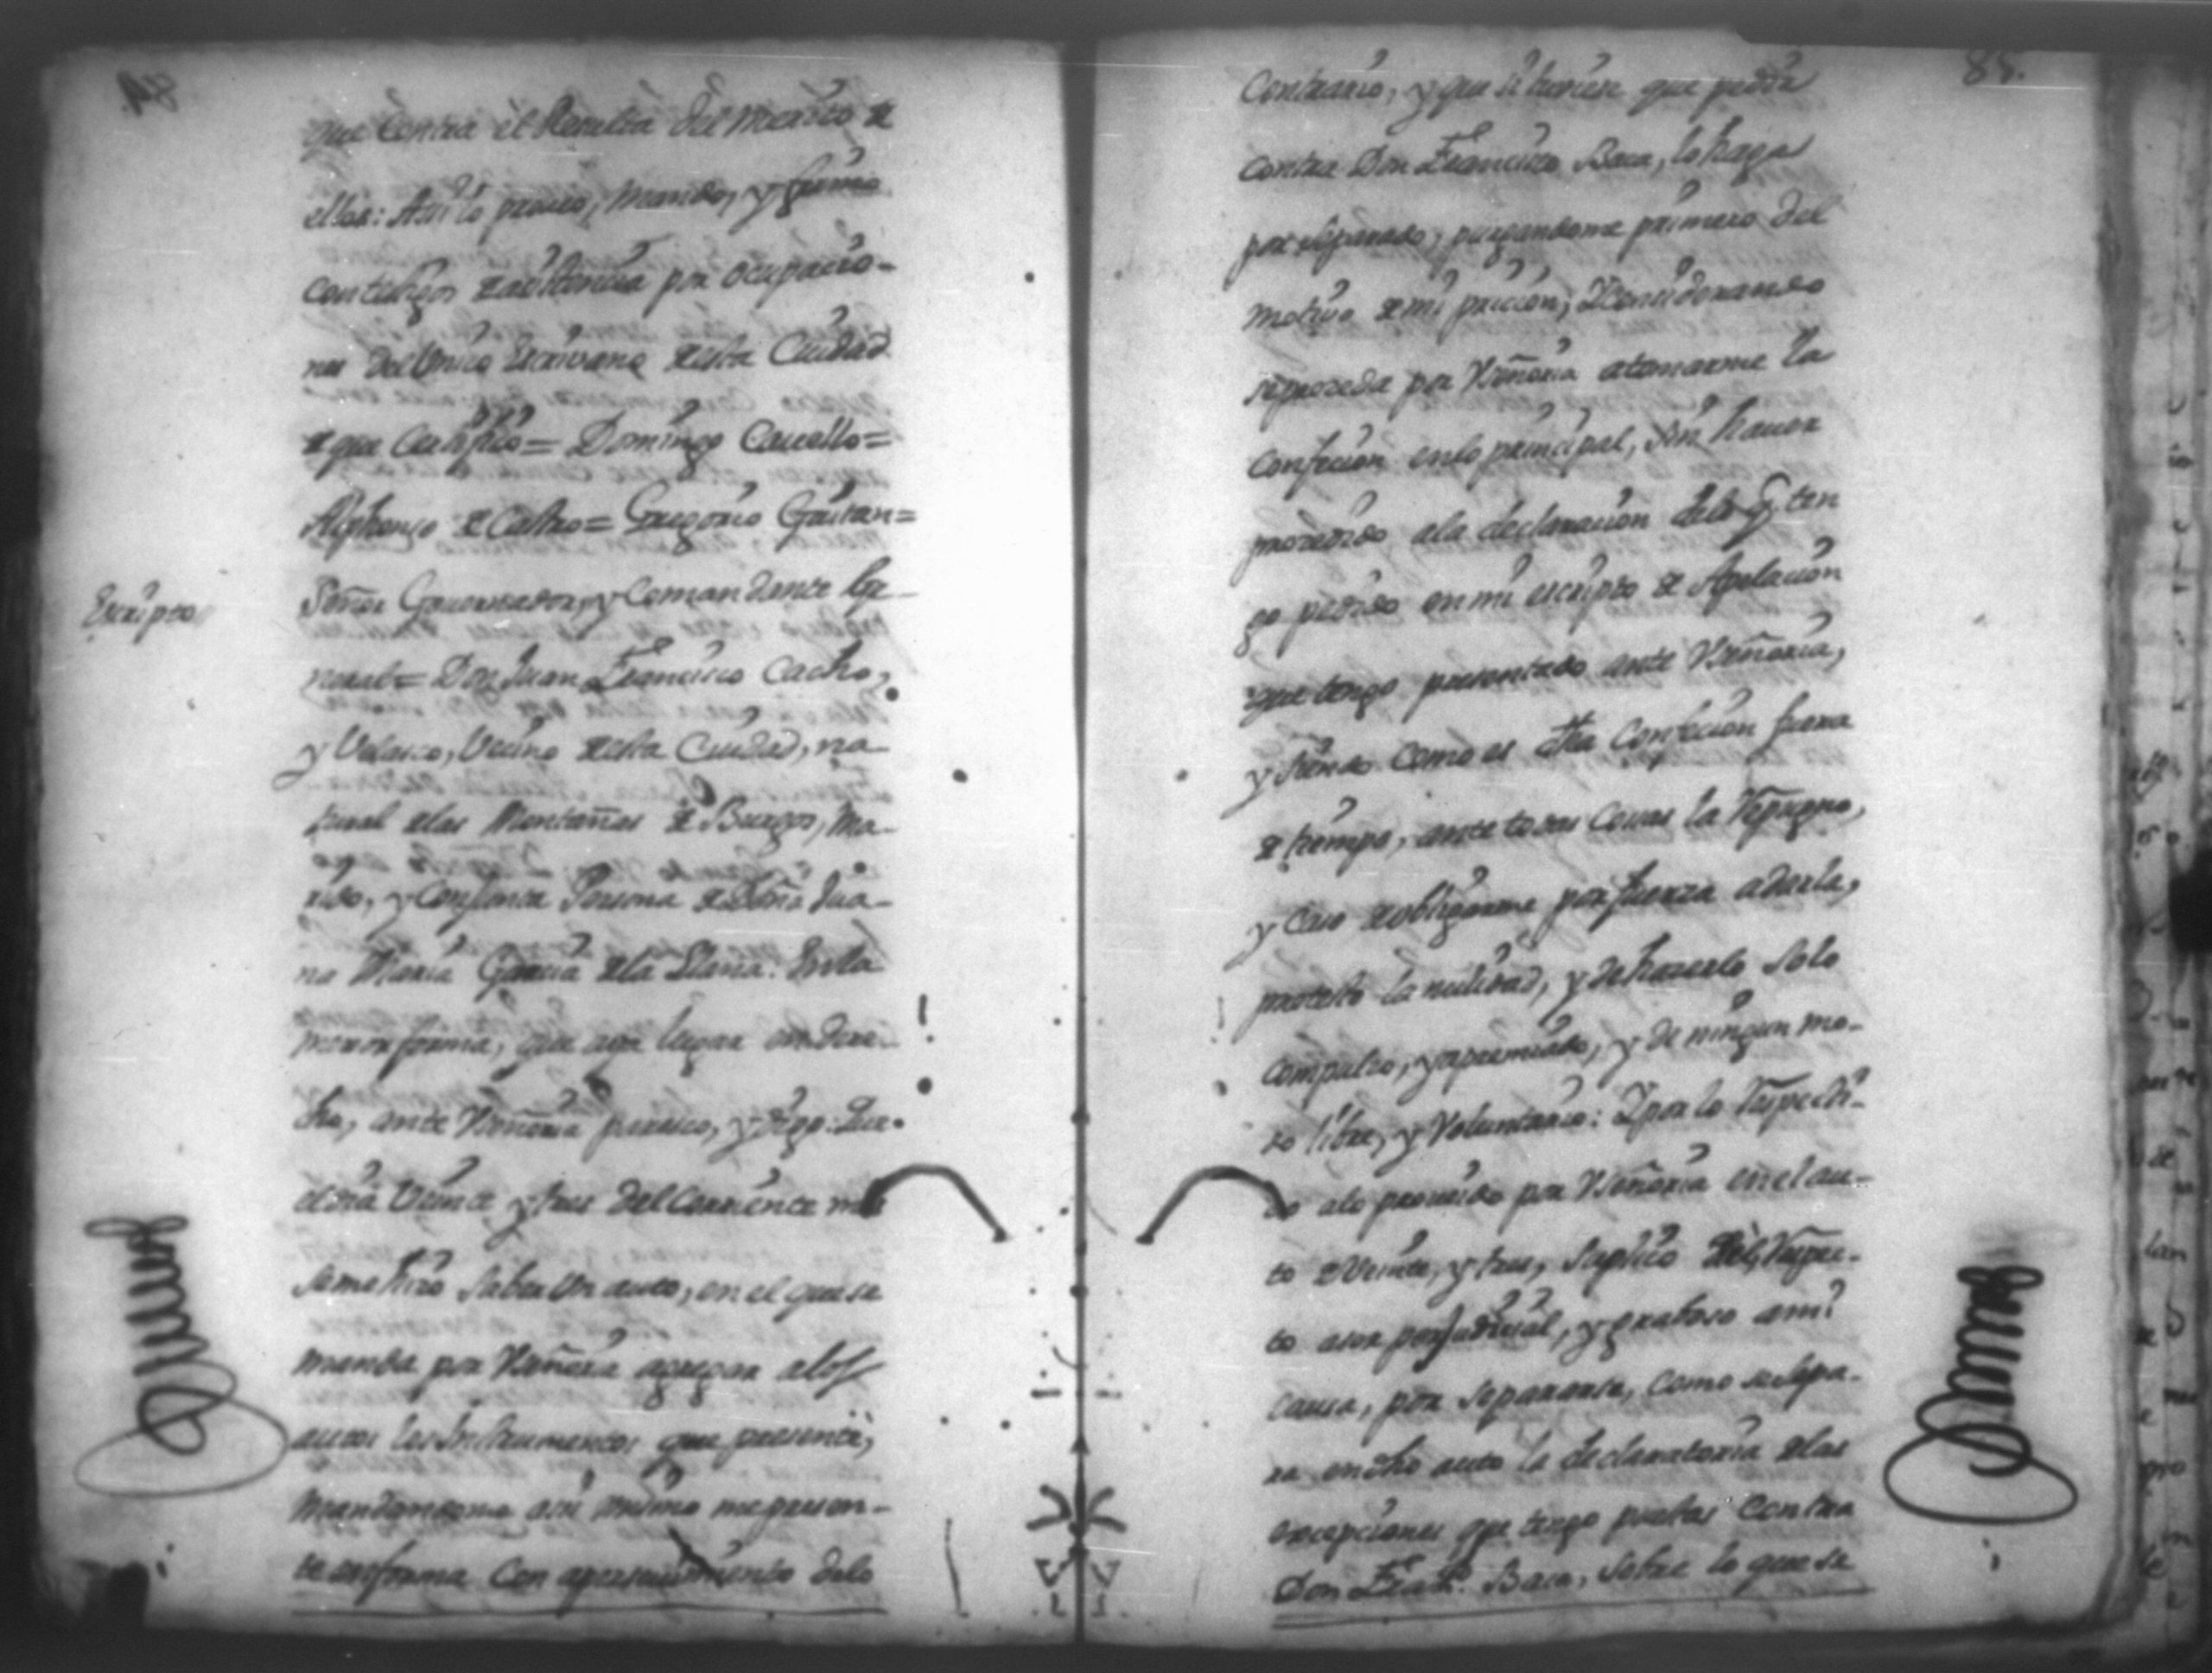 que Contra el Resulta del merito de
ellos: Asi lo proveo, mando, y firmo
con testigos de asistencia por ocupacio-
nes del Unico Escrivano de esta Ciudad
de que Certifico = Domingo Cavello =
Alphonso de Castro = Gregorio Gaitan =
Escripto
Señor Governador, y Comandante Ge-
neral = Don Juan Francisco Cacho,
y Velasco, Vecino de esta Ciudad, na-
tural de las Montañas de Burgos, Ma-
rido, y Conjunta Persona de Doña Jua-
na Maria Garcia de la Llana. En la
mexor forma, que aya lugar en dere-
cho, ante Vseñoria paresco, y digo: Que
el dia Veinte y tres del Corriente mes
se me hizo saber Un auto, en el que se
manda por Vseñoria agregar a los
autos los Instrumentos que presenté,
mandandome asi mismo me presen-
te en forma Con apersevimiento de lo
85.
Contrario, y que si tuviese que pedir
contra Don Francisco Baca, lo haga
por separado, purgandome primero del
motivo de mi pricion, Y Considerando
se proceda por Vseñoria a tomarme la
Confecion en lo principal, sin haver
procedido a la declaracion de lo q̃ ten
go pedido en mi escripto de Apelacion
que tengo presentado ante Vseñoria,
y siendo como es dha Confecion fuera
de tiempo, ante todas Cosas la Repugno,
y Caso de obligarme por fuerza a darla,
protesto la nulidad, y de hacerlo solo
compulso, y apremiado, y de ningun mo-
do libre, y Voluntario: Y por lo Respecti-
vo a lo proveido por Vseñoria en el au-
to de Veinte, y tres, Suplico de el, Respec-
to a ser perjudicial, y gravoso a mi
causa, por separarse, como se sepa-
ra en dho auto la declaratoria de las
excepciones que tengo puestas Contra
Don Franco. Baca, sobre lo que se